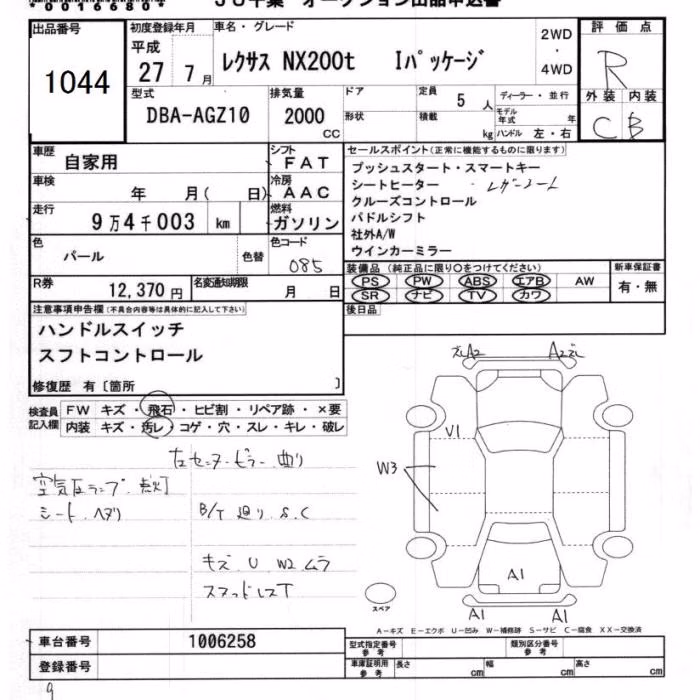 *0016680*
JU千葉 オークション出品申込書
出品番号 初度登録年月 車名・グレード 評価点
1044 平成 27年 7月 レクサス NX200t Iパッケージ 2WD・4WD R
型式 排気量 ドア 定員 5人 ディーラー・並行 外装 内装
DBA-AGZ10 2000 CC 形状 積載 kg モデル年式 年 ハンドル 左・右 C B
車歴 自家用 シフト FAT セールスポイント(正常に機能するものに限ります)
車検 年 月( 日) 冷房 AAC プッシュスタート・スマートキー
シートヒーター・レザーシート
走行 9万4千003 km 燃料 ガソリン クルーズコントロール
パドルシフト
社外A/W
色 パール 色替 色コード 085 ウインカーミラー
装備品(純正品に限り○をつけてください) 新車保証書
R券 12,370円 名変通知期限 月 日 PS PW ABS エアB AW 有・無
SR ナビ TV カワ
注意事項申告欄(不具合内容等は具体的に記入して下さい) 後日品
ハンドルスイッチ
スフトコントロール
修復歴 有〔箇所 〕
検査員記入欄 FW キズ・飛石・ヒビ割・リペア跡・×要
内装 キズ・汚レ・コゲ・穴・スレ・キレ・破レ
左センターピラー曲り
空気圧ランプ 点灯
シート ヘタリ B/T 廻り S.C
キズ U W2 ムラ
スマッドレスT
A2 A2
V1
W3
A1
A1 A1
スペア
A-キズ E-エクボ U-凹み W-補修跡 S-サビ C-腐食 XX-交換済
車台番号 1006258 型式指定番号 参考 類別区分番号 参考
登録番号 車庫証明用 参考 長さ cm 幅 cm 高さ cm
9